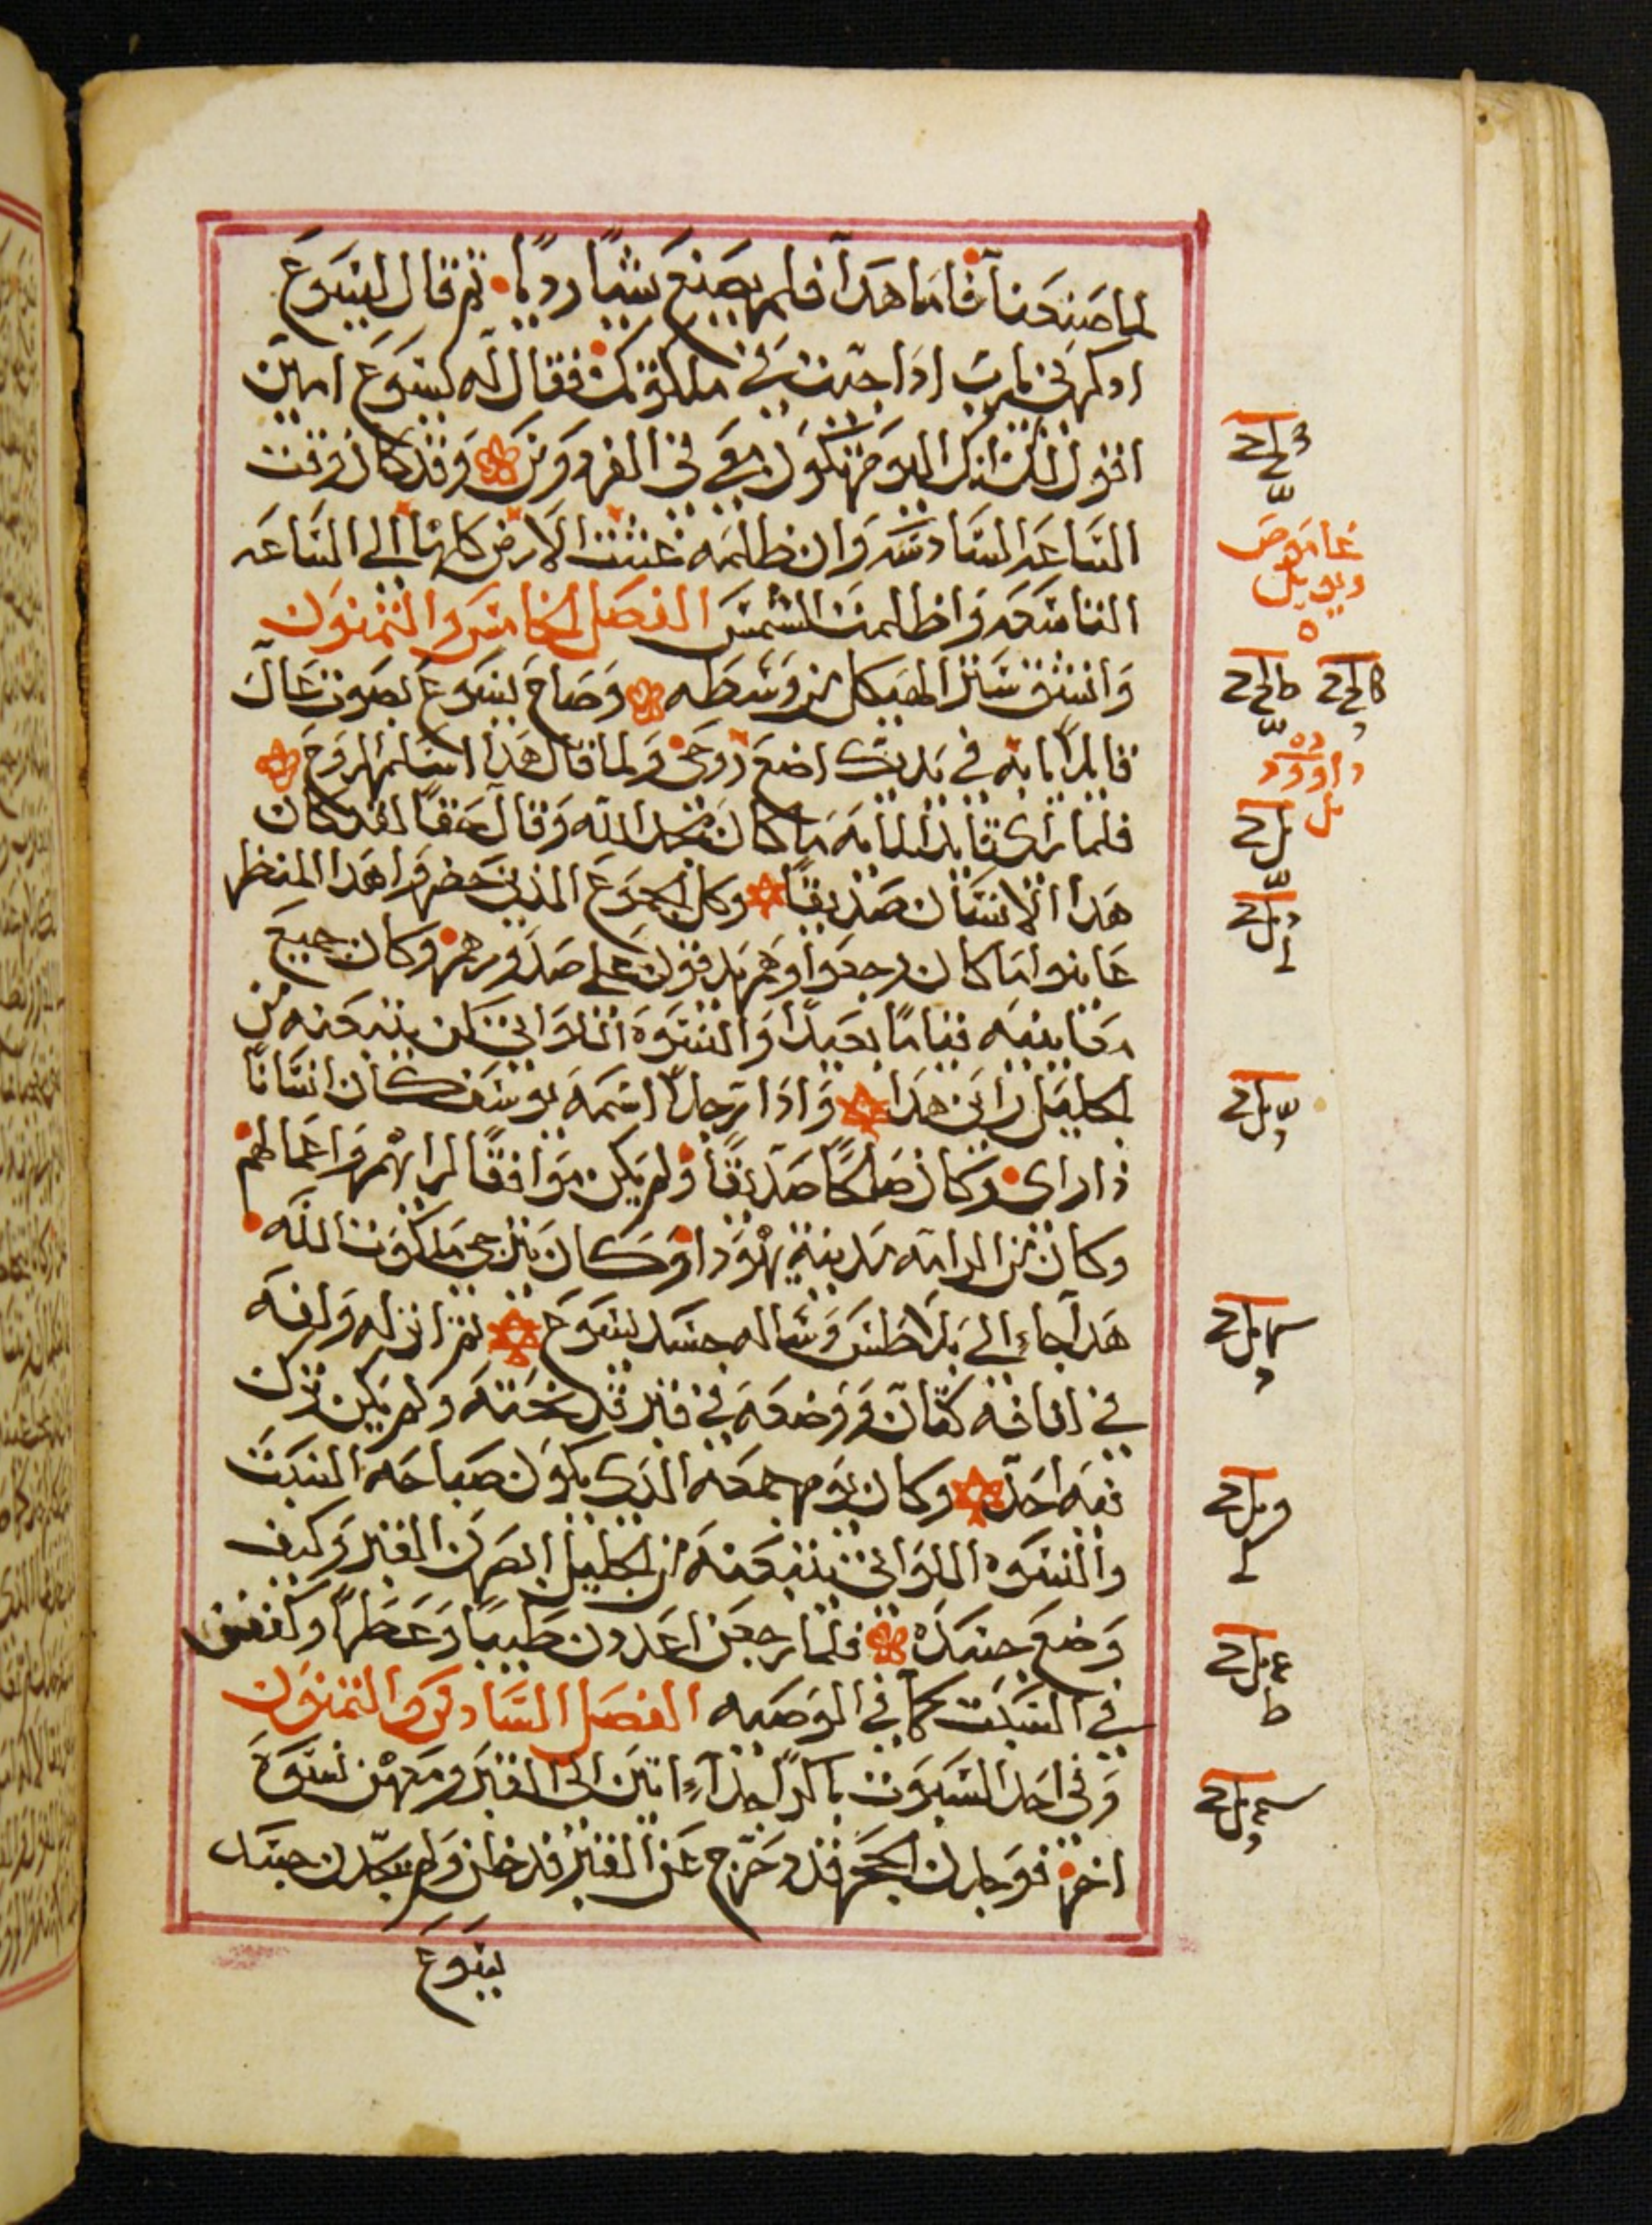 لما صنعنا فاما هدا فلم يصنع شيًا رديًا ثم قال ليسوع
ادكرنى يارب ادا جيت في ملكوتك فقال له يسوع امين
اقول لك انك اليوم تكون معي في الفردوس وقد كان وقت
الساعه السادسه وان ظلمه غشت الارض كلها الى الساعه
التاسعه واظلمت الشمس الفصل الخامس والثمنون
وانشق ستر الهيكل من وسطه وصاح يسوع بصوت عال
قايلا يا ابه في يديك اضع روحى ولما قال هدا اسلم الروح
فلما راى قايد المايه ما كان مجد الله وقال حقًا لقد كان
هدا الانسان صديقًا وكل الجموع الدين حضروا هدا المنظر
عاينوا ما كان رجعوا وهم يدقون على صدورهم وكان جميع
معارفه قيامًا بعيدًا والنسوه اللواتى كن يتبعنه من
الجليل راين هدا وادا رجلا اسمه يوسف كان انسانًا
دا راى وكان صالحًا صديقًا ولم يكن موافقًا لرايهم واعمالهم
وكان من الرامه مدينة يهودا وكان يترجى ملكوت الله
هدا جاء الى بلاطس وساله جسد يسوع ثم انزله ولفه
في لفافه كتان ووضعه في قبر قد نحته ولم يكن ترك
فيه احد وكان يوم جمعه الدى يكون صباحه السبت
والنسوه اللواتى يتبعنه من الجليل ابصرن القبر وكيف
وضع جسده فلما رجعن اعددن طيبًا وعطرًا وكففن
في السبت كما في الوصيه الفصل السادس والثمنون
وفى احد السبوت باكرًا جداً اتين الى القبر ومعهن نسوة
اخر فوجدن الحجر قد دحرج عن القبر فدخلن ولم يجدن جسد
يسوع
غاموص
ويويل
داوود